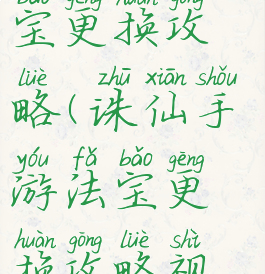 bǎo gēng huàn gōng
宝更换攻
lüè zhū xiān shǒu
略(诛仙手
yóu fǎ bǎo gēng
游法宝更
huàn gōng lüè shì
换攻略视